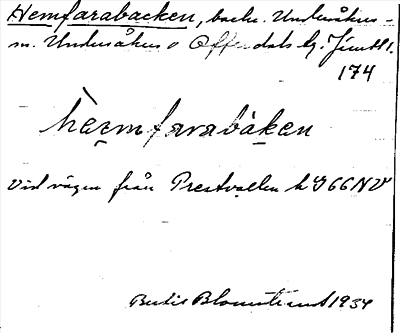 Hemfarabacken, backe. Undersåkers-
sn. Undersåkers o Offerdals tg. Jämtl l.
174
hæmfarabàkən
Vid vägen från Prestvallen t. G66 NV
Bertil Blomstrand 1934